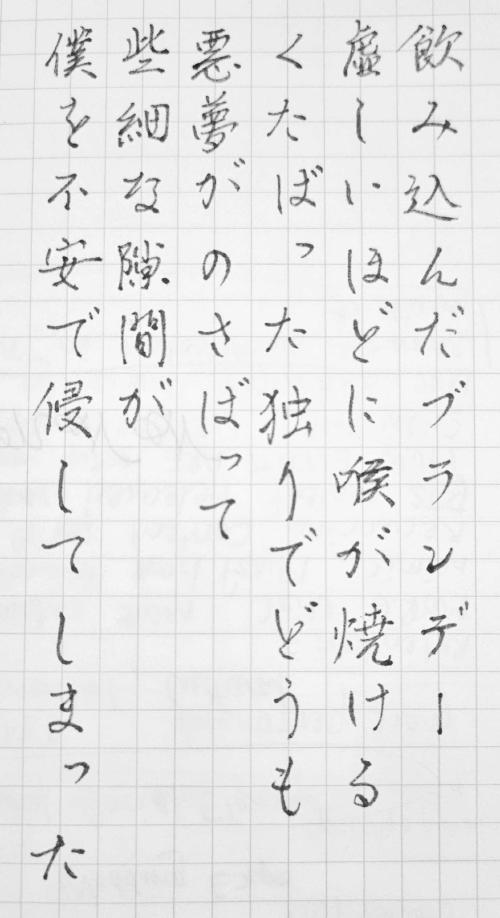 飲み込んだブランデー
虚しいほどに喉が焼ける
くたばった独りでどうも
悪夢がのさばって
些細な隙間が
僕を不安で侵してしまった